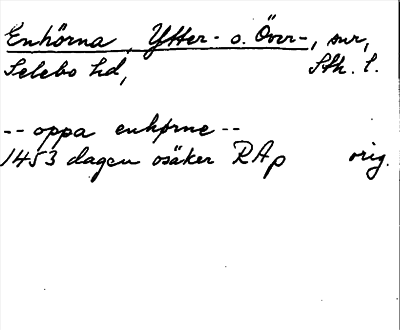 Enhörna, Ytter- o. Över-, snr,
Selebo hd, Sth. l.
-- oppa enhørne --
1453 dagen osäker RAp orig.